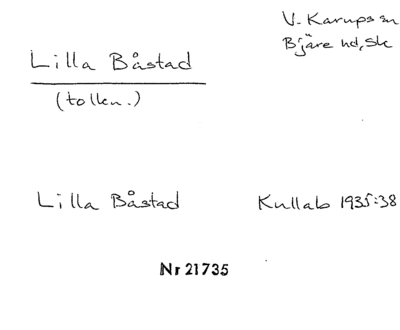 V. Karups sn
Bjäre hd, Sk
Lilla Båstad
(tolkn.)
Lilla Båstad Kullab 1935:38
Nr 21735